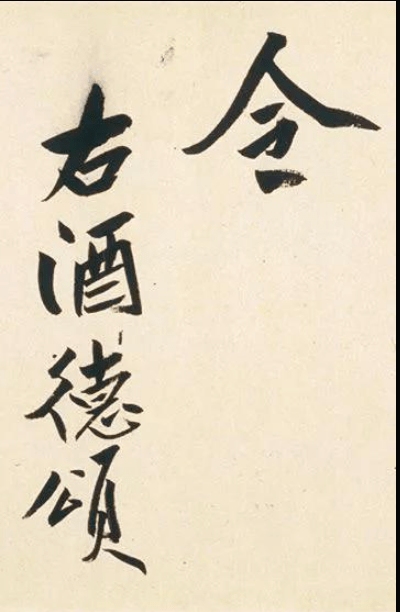 令
右酒德頌